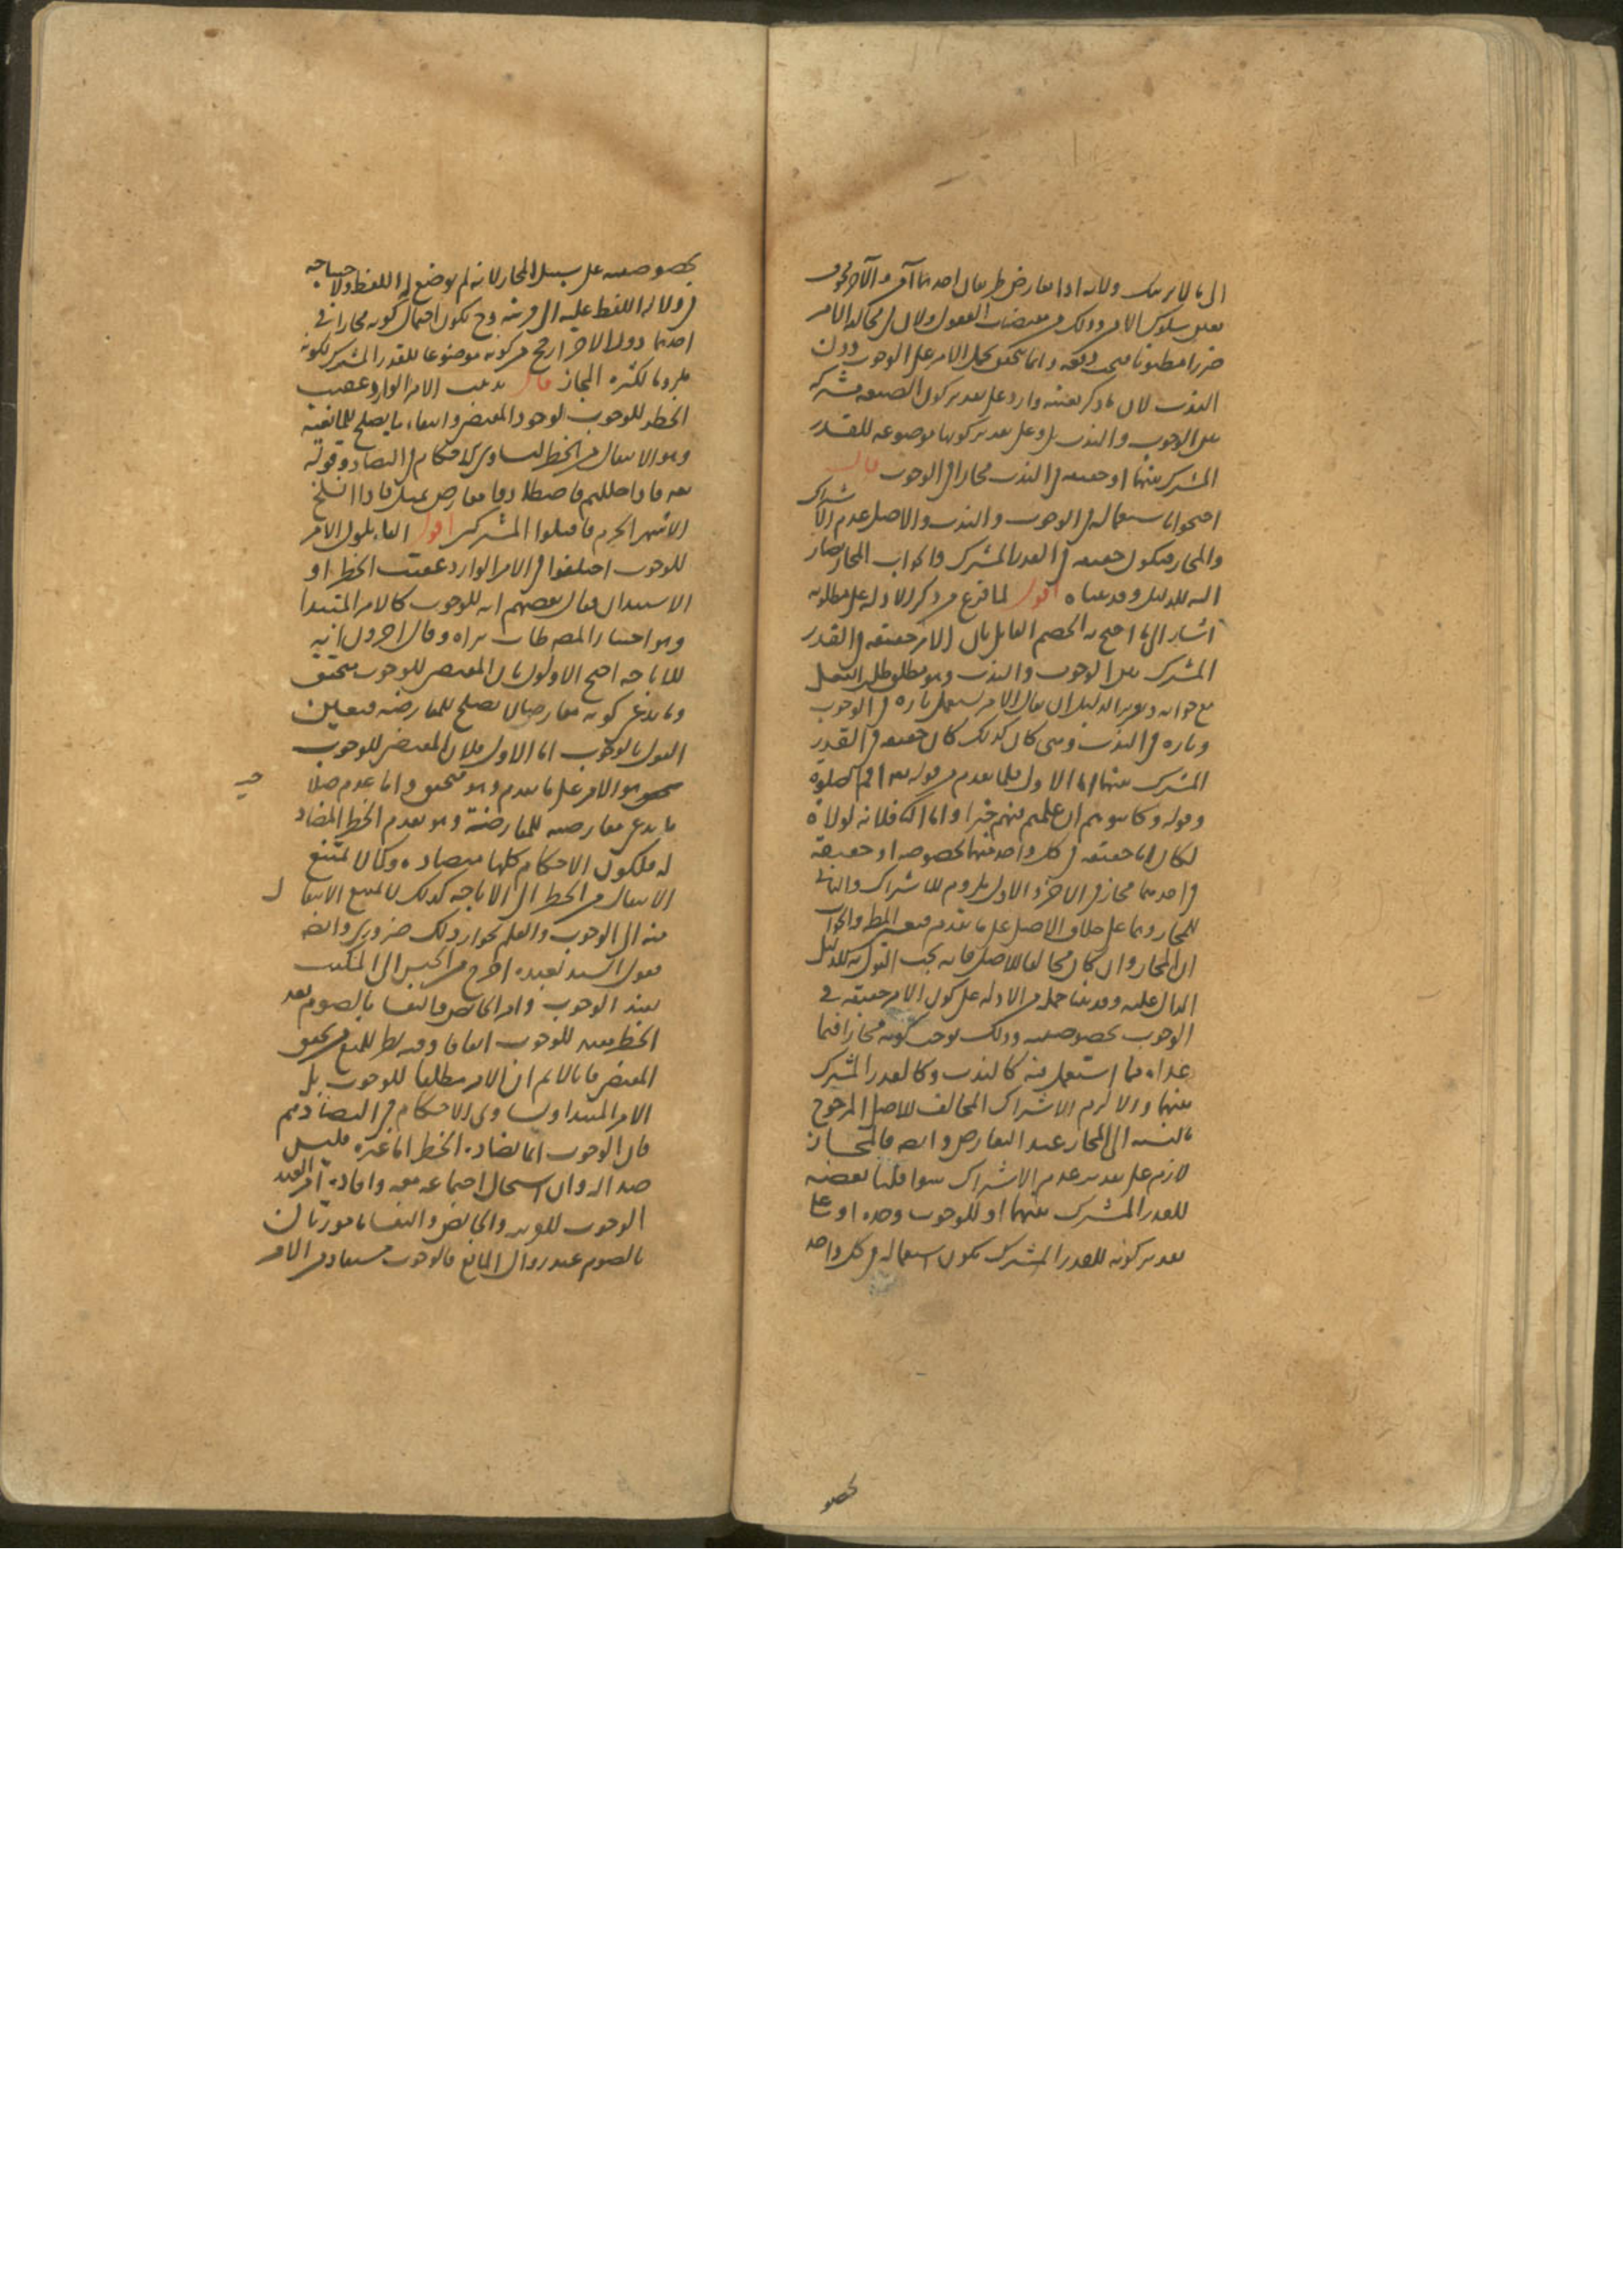 الى ما لا يريبك ولانه اذا تعارض طريقان احدهما آمن والآخر مخوف
تعين سلوك الآمن وذلك من مقتضيات العقول ولان في مخالفة الامر
ضررا مظنونا فيجب دفعه وانما يتحقق بحمل الامر على الوجوب دون
الندب لان ما ذكر بعينه وارد على تقدير كون الصيغة مشتركة
بين الوجوب والندب بل وعلى تقدير كونها موضوعه للقدر
المشترك بينهما او حقيقه في الندب مجازا في الوجوب قال
احتجوا باستعماله في الوجوب والندب والاصل عدم الاشتراك
والمجاز فيكون حقيقه في القدر المشترك والجواب المجاز يصار
اليه للدليل وقد بيناه اقول لما فرغ من ذكر الادله على مطلوبه
اشار الى ما احتج به الخصم القايل بان الامر حقيقه في القدر
المشترك بين الوجوب والندب وهو مطلق طلب الفعل
مع جوابه وتقرير الدليل ان يقال الامر يستعمل تاره في الوجوب
وتاره في الندب ومتى كان كذلك كان حقيقه في القدر
المشترك بينهما اما الاول فلما تقدم من قوله تعالى اقم الصلوة
وقوله فكاتبوهم ان علمتم فيهم خيرا واما الثاني فلانه لولاه
لكان اما حقيقه في كل واحد منهما بخصوصه او حقيقة
في احدهما مجاز في الآخر والاول يلزم للاشتراك والثاني
للمجاز وهما على خلاف الاصل على ما تقدم فتعين المط والجواب
ان المجاز وان كان مخالفا للاصل فانه يجب القول به للدليل
الدال عليه وقد بينا جملة من الادله على كون الامر حقيقه في
الوجوب بخصوصيته وذلك يوجب كونه مجازا فيما
عداه مما استعمل فيه كالندب وكالقدر المشترك
بينهما والا لزم الاشتراك المخالف للاصل المرجوح
بالنسبه الى المجاز عند التعارض وايضا فالمجاز
لازم على تقدير عدم الاشتراك سوا قلنا بوضعه
للقدر المشترك بينهما او للوجوب وحده او على
تقدير كونه للقدر المشترك يكون استعماله في كل واحد
بخصو
بخصوصيته على سبيل المجاز لانه لم يوضع له اللفظ ولاحتياجه
في دلالة اللفظ عليه الى قرينة وح يكون احتمال كونه مجازا في
احدهما دون الاخر ارجح من كونه موضوعا للقدر المشترك لكونه
ملزوما لكثرة المجاز قال يذهب الامر الوارد عقيب
الحظر للوجوب لوجود المقتضي وانتفاء ما يصلح للمانعية
وهو الانتقال من الحظر لتساوي الاحكام في التضاد وقوله
تعالى فاذا حللتم فاصطادوا معارض بمثل فاذا انسلخ
الاشهر الحرم فاقتلوا المشركين اقول القايلون بان الامر
للوجوب اختلفوا في الامر الوارد عقيب الحظر او
الاستيذان فقال بعضهم انه للوجوب كالامر المبتدا
وهو اختيار المصنف طاب ثراه وقال آخرون انه
للاباحه احتج الاولون بان المقتضي للوجوب متحقق
وما يدعى كونه معارضا لا يصلح للمعارضه فتعين
القول بالوجوب اما الاول فلان المقتضي للوجوب
هو الامر على ما تقدم وهو متحقق واما عدم صلاحية
ما يدعى معارضته للمعارضة وهو تقدم الحظر المضاد
له فلكون الاحكام كلها متضاده وكما لا يمتنع
الانتقال من الحظر الى الاباحه كذلك لا يمتنع الانتقال
منه الى الوجوب والعلم بجواز ذلك ضروري وايضا
فقول السيد لعبده اخرج من الحبس الى المكتب
يفيد الوجوب وامر الحائض والنفسا بالصوم بعد
الحظر يفيد للوجوب اتفاقا وفيه نظر للمنع من تحقق
المقتضي فانا لا نم ان الامر مطلقا للوجوب بل
الامر المبتدا وتساوي الاحكام في التضاد مم
فان الوجوب انما يضاده الحظر اما غيره فليس
ضدا له وان استحال اجتماعه معه وافادة امر العبد
الوجوب للقرينة والحائض والنفسا مامورتان
بالصوم عند زوال المانع فالوجوب مستفاد من الامر